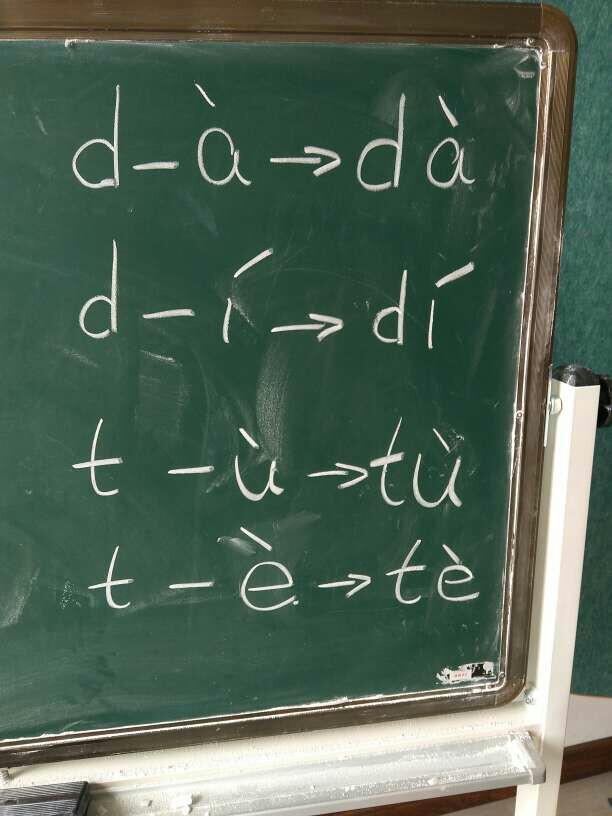 d – à → dà
d – í → dí
t – ù → tù
t – è → tè